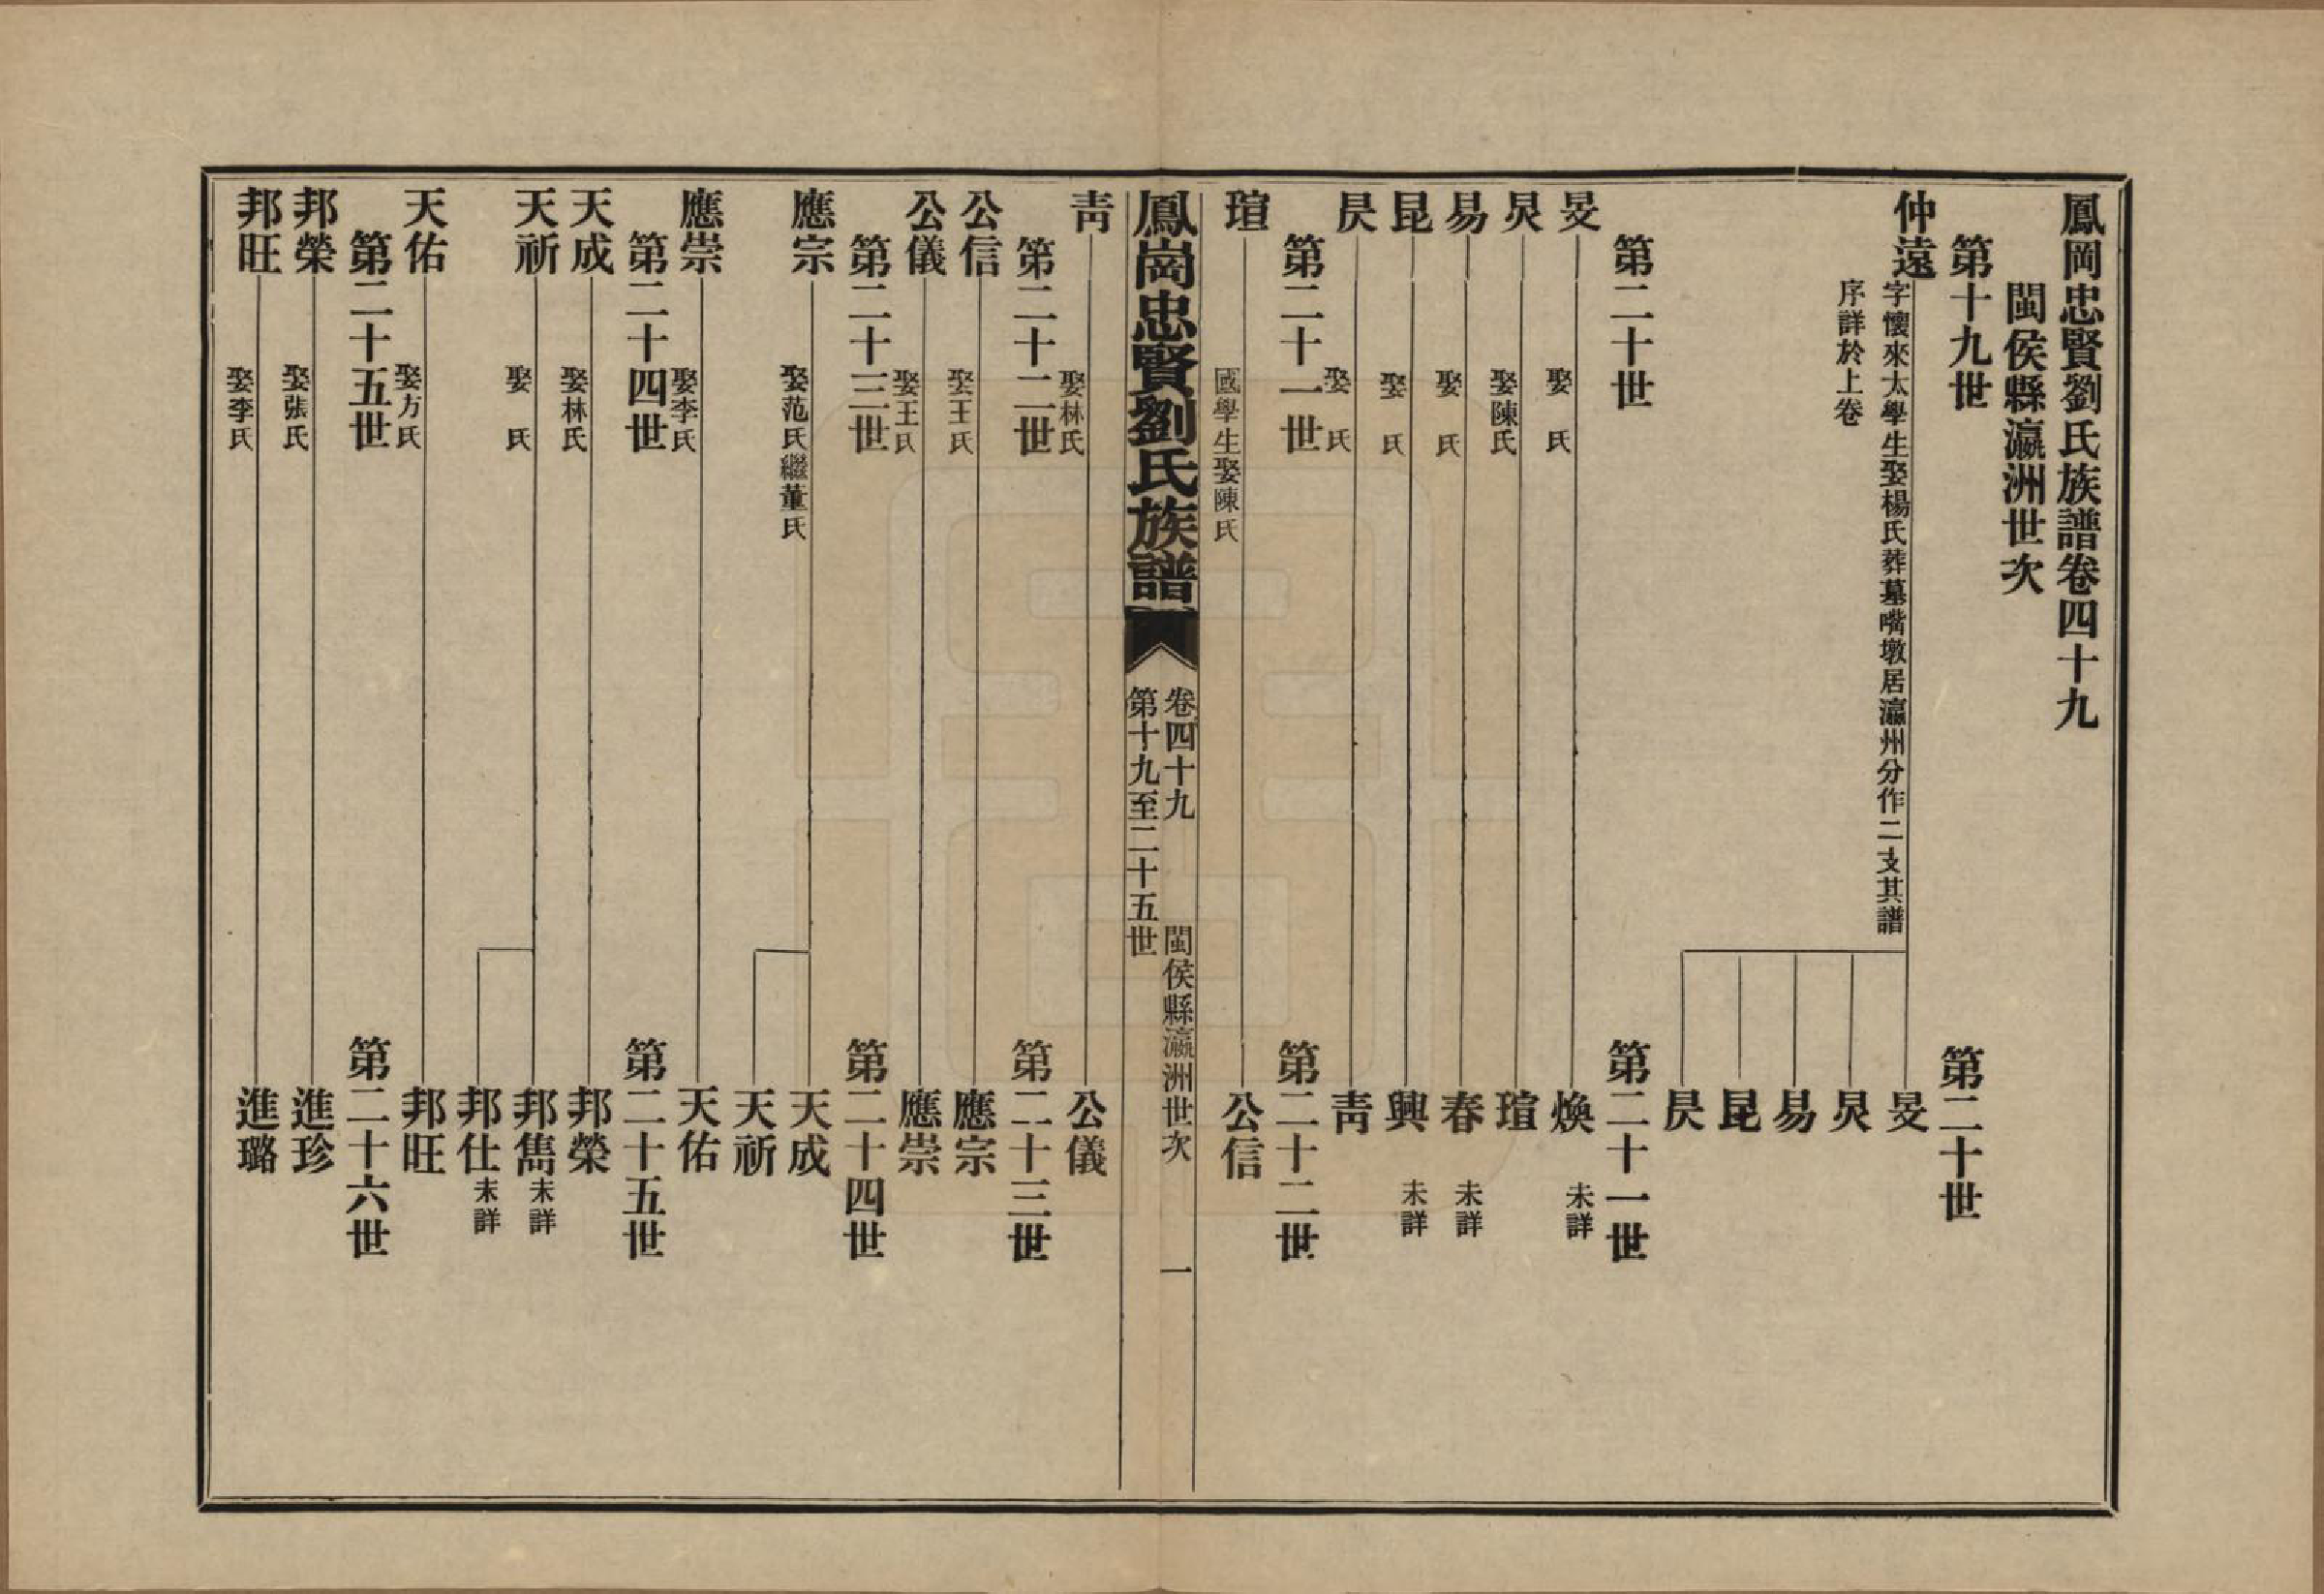 鳳岡忠賢劉氏族譜卷四十九
閩侯縣瀛洲世次
第十九世
第二十世
仲遠
字懷來太學生娶楊氏葬墓嘴墩居瀛州分作二支其譜
序詳於上卷
旻
炅
易
昆
昃
第二十世
第二十一世
旻
娶 氏
煥 未詳
炅
娶陳氏
瑄
易
娶 氏
春 未詳
昆
娶 氏
興 未詳
昃
娶 氏
靑
第二十一世
第二十二世
瑄
國學生娶陳氏
公信
鳳崗忠賢劉氏族譜
卷四十九 閩侯縣瀛洲世次 一
第十九至二十五世
靑
娶林氏
公儀
第二十二世
第二十三世
公信
娶王氏
應宗
公儀
娶王氏
應崇
第二十三世
第二十四世
應宗
娶范氏繼董氏
天成
天祈
應崇
娶李氏
天佑
第二十四世
第二十五世
天成
娶林氏
邦榮
天祈
娶 氏
邦雋 未詳
邦仕 未詳
天佑
娶方氏
邦旺
第二十五世
第二十六世
邦榮
娶張氏
進珍
邦旺
娶李氏
進璐